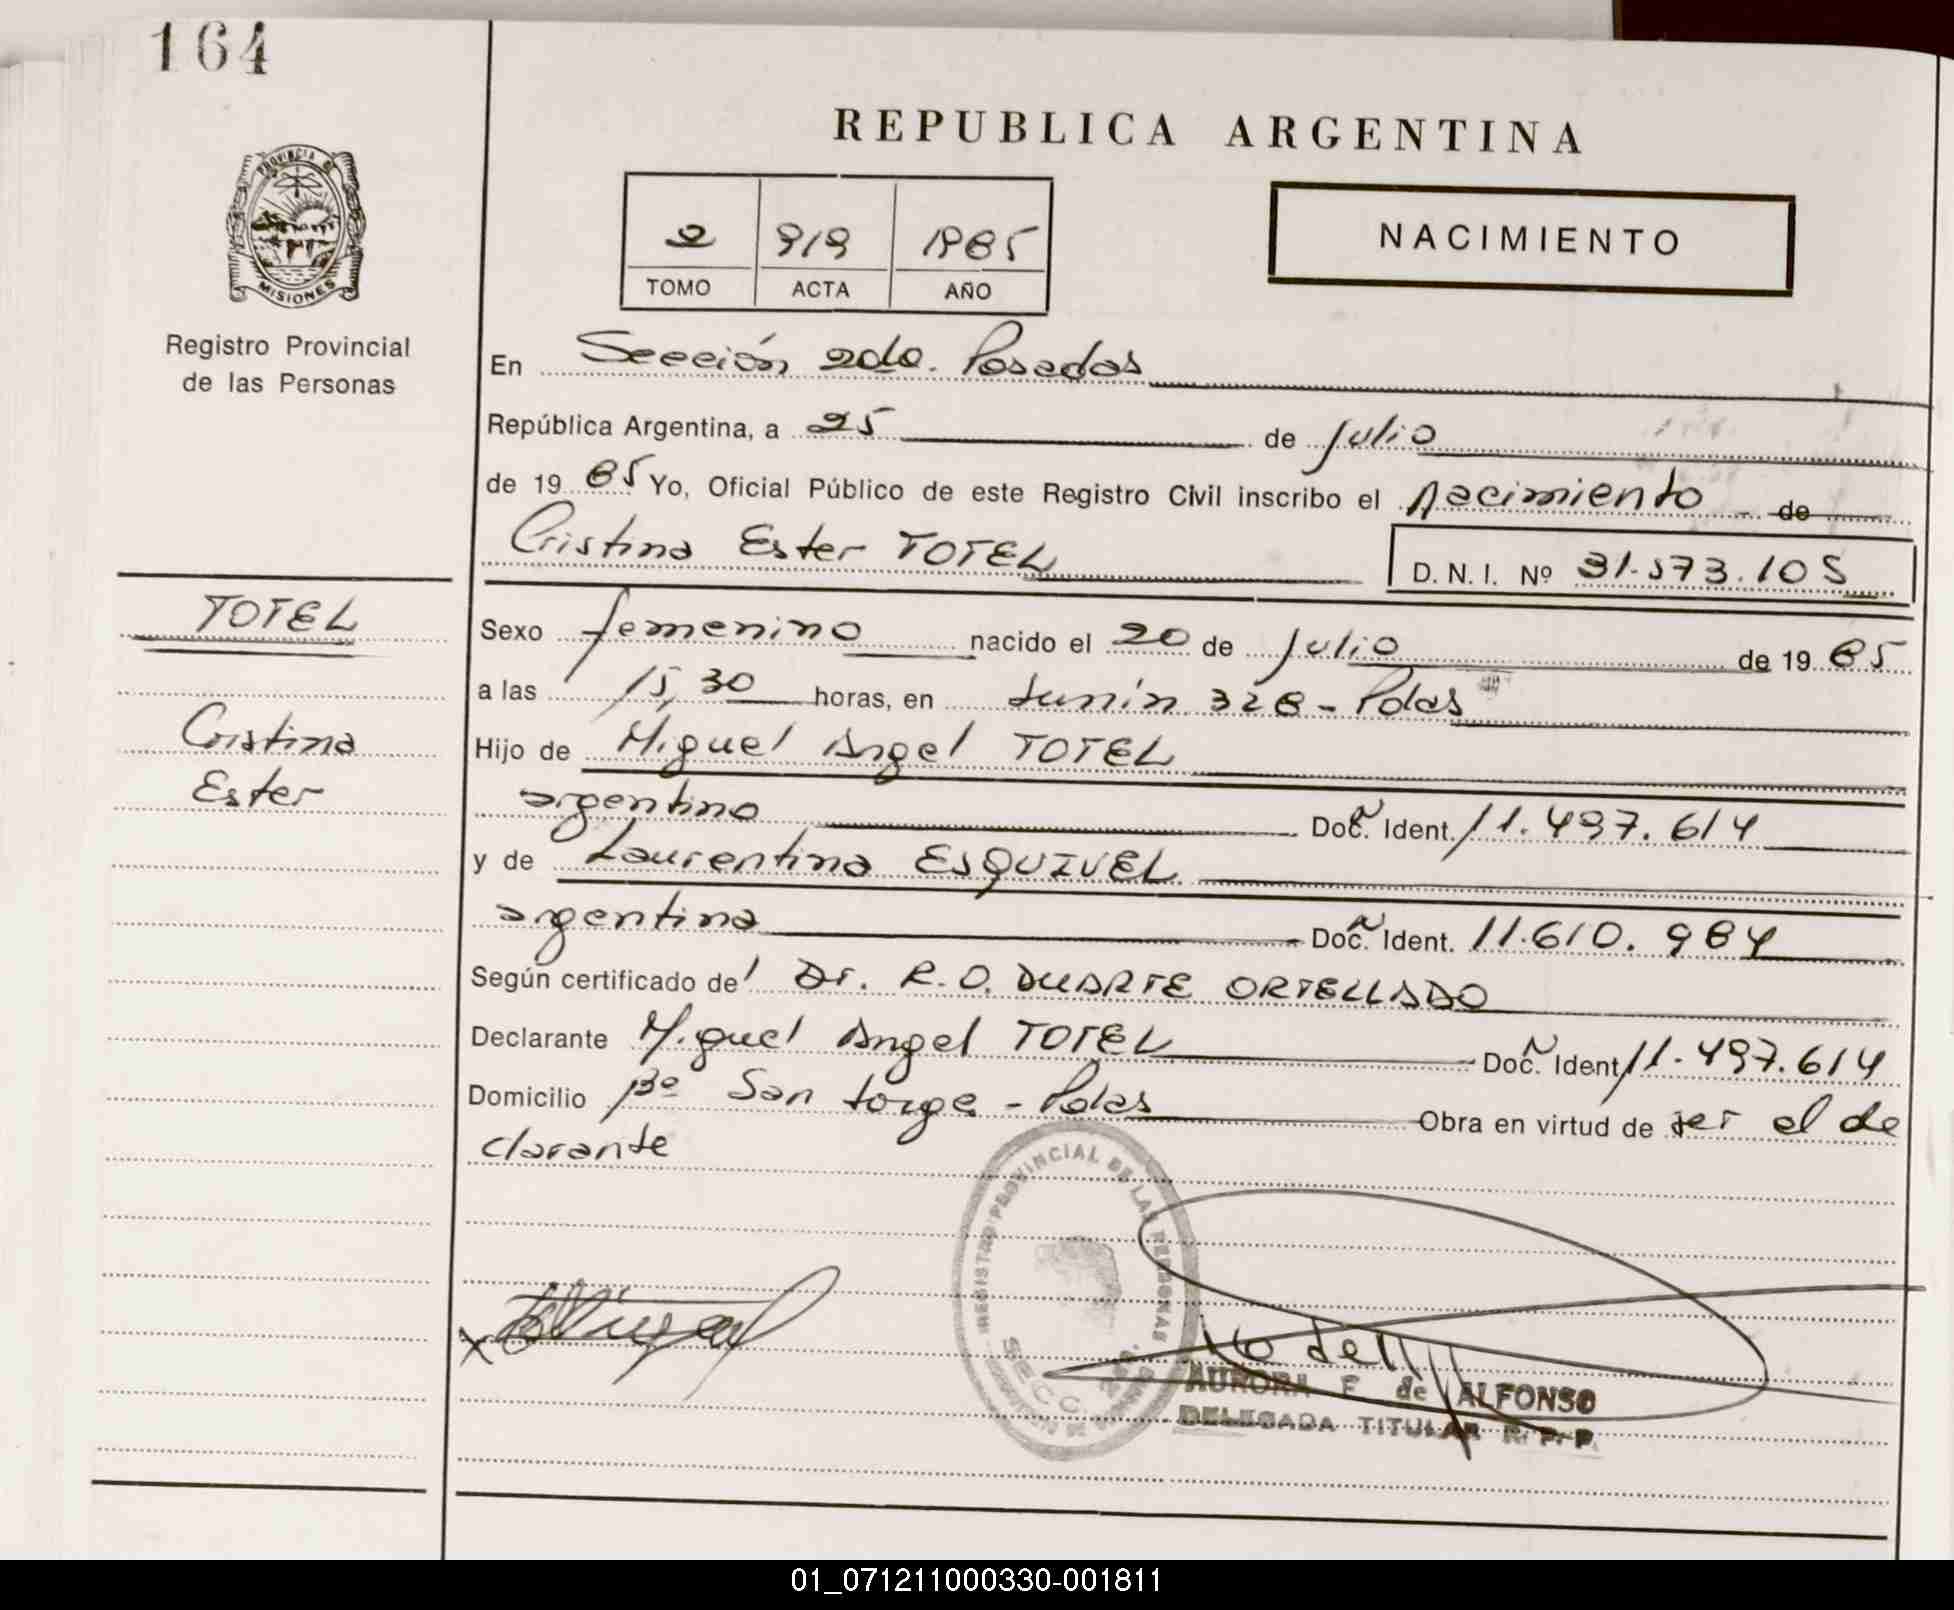 164
REPUBLICA ARGENTINA
PROVINCIA DE
MISIONES
Registro Provincial
de las Personas
2 919 1985
TOMO ACTA AÑO
NACIMIENTO
En Sección 2da. Posadas
República Argentina, a 25 de Julio
de 1985 Yo, Oficial Público de este Registro Civil inscribo el nacimiento de
Cristina Ester TOTEL D. N. I. Nº 31.573.105
TOTEL
Cristina
Ester
Sexo femenino nacido el 20 de Julio de 1985
a las 15,30 horas, en Junín 328 - Pdas
Hijo de Miguel Angel TOTEL
argentino Doc. Ident. 11.497.614
y de Laurentina ESQUIVEL
argentina Doc. Ident. 11.610.984
Según certificado de Dr. R.O. DUARTE ORTELLADO
Declarante Miguel Angel TOTEL Doc. Ident. 11.497.614
Domicilio Bº San Jorge - Pdas Obra en virtud de ser el de
clarante
REGISTRO PROVINCIAL DE LAS PERSONAS
SECC.
AURORA F. de ALFONSO
DELEGADA TITULAR R. P. P.
01_071211000330-001811